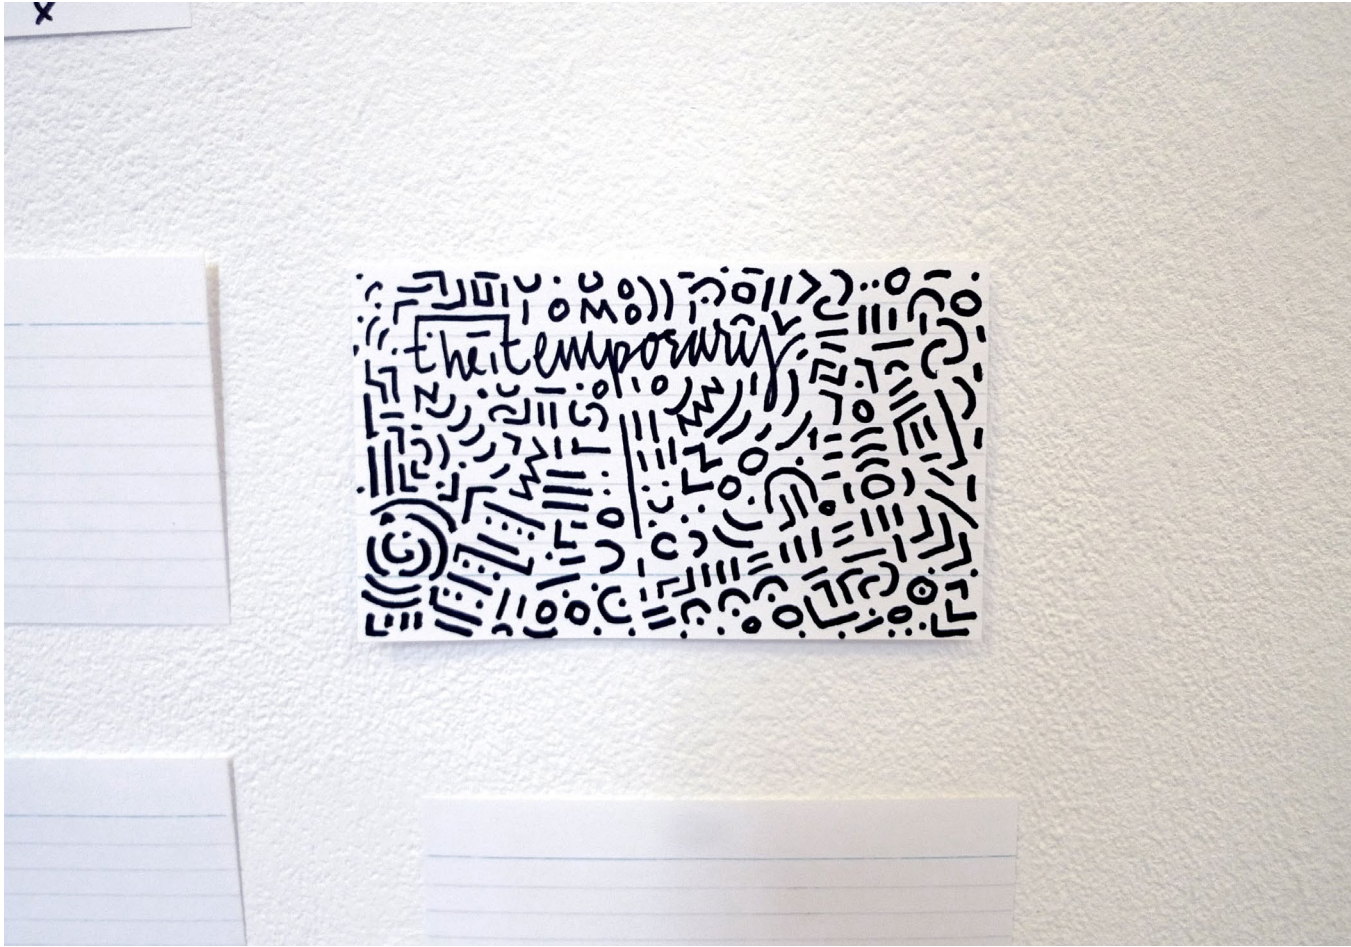 x
the temporary